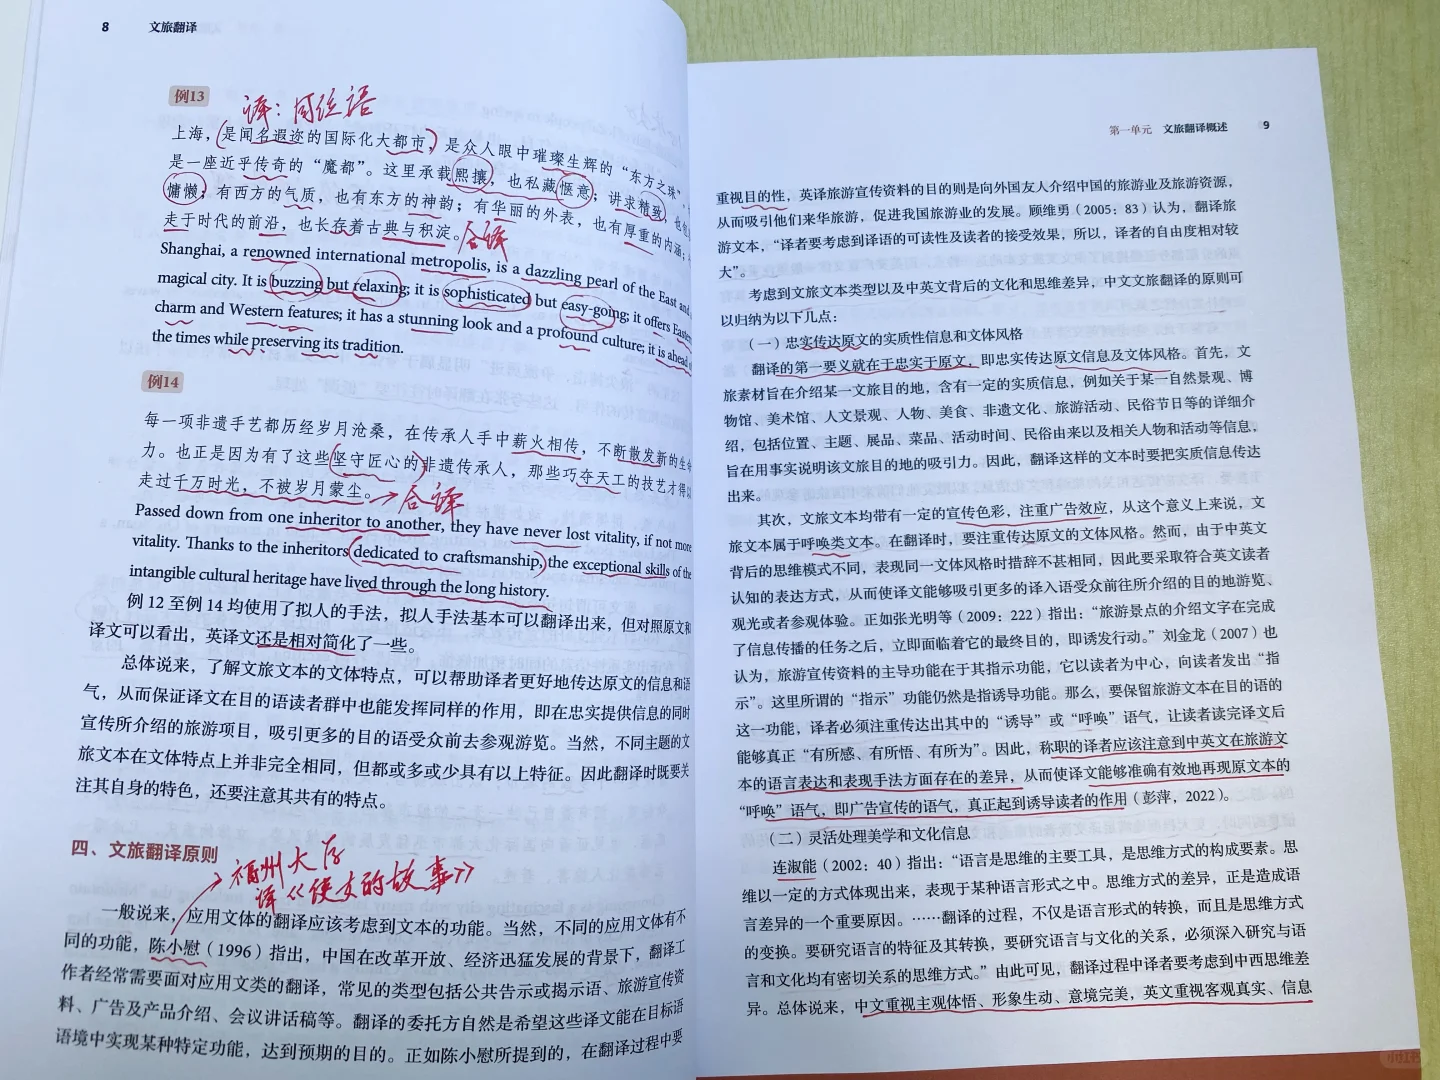 8 文旅翻译
例13 译：同位语
上海，是闻名遐迩的国际化大都市，是众人眼中璀璨生辉的“东方之珠”，
是一座近乎传奇的“魔都”。这里承载熙攘，也私藏惬意；讲求精致，也
慵懒；有西方的气质，也有东方的神韵；有华丽的外表，也有厚重的内涵；
走于时代的前沿，也长存着古典与积淀。 合译
Shanghai, a renowned international metropolis, is a dazzling pearl of the East and
magical city. It is buzzing but relaxing; it is sophisticated but easy-going; it offers Eastern
charm and Western features; it has a stunning look and a profound culture; it is ahead of
the times while preserving its tradition.
例14
每一项非遗手艺都历经岁月沧桑，在传承人手中薪火相传，不断散发新的生命
力。也正是因为有了这些坚守匠心的非遗传承人，那些巧夺天工的技艺才得以
走过千万时光，不被岁月蒙尘。→合译
Passed down from one inheritor to another, they have never lost vitality, if not more
vitality. Thanks to the inheritors dedicated to craftsmanship, the exceptional skills of the
intangible cultural heritage have lived through the long history.
例 12 至例 14 均使用了拟人的手法，拟人手法基本可以翻译出来，但对照原文和
译文可以看出，英译文还是相对简化了一些。
总体说来，了解文旅文本的文体特点，可以帮助译者更好地传达原文的信息和语
气，从而保证译文在目的语读者群中也能发挥同样的作用，即在忠实提供信息的同时
宣传所介绍的旅游项目，吸引更多的目的语受众前去参观游览。当然，不同主题的文
旅文本在文体特点上并非完全相同，但都或多或少具有以上特征。因此翻译时既要关
注其自身的特色，还要注意其共有的特点。
四、文旅翻译原则
福州大学
译《使女的故事》
一般说来，应用文体的翻译应该考虑到文本的功能。当然，不同的应用文体有不
同的功能，陈小慰（1996）指出，中国在改革开放、经济迅猛发展的背景下，翻译工
作者经常需要面对应用文类的翻译，常见的类型包括公共告示或揭示语、旅游宣传资
料、广告及产品介绍、会议讲话稿等。翻译的委托方自然是希望这些译文能在目标语
语境中实现某种特定功能，达到预期的目的。正如陈小慰所提到的，在翻译过程中要
第一单元 文旅翻译概述 9
重视目的性，英译旅游宣传资料的目的则是向外国友人介绍中国的旅游业及旅游资源，
从而吸引他们来华旅游，促进我国旅游业的发展。顾维勇（2005：83）认为，翻译旅
游文本，“译者要考虑到译语的可读性及读者的接受效果，所以，译者的自由度相对较
大”。
考虑到文旅文本类型以及中英文背后的文化和思维差异，中文文旅翻译的原则可
以归纳为以下几点：
（一）忠实传达原文的实质性信息和文体风格
翻译的第一要义就在于忠实于原文，即忠实传达原文信息及文体风格。首先，文
旅素材旨在介绍某一文旅目的地，含有一定的实质信息，例如关于某一自然景观、博
物馆、美术馆、人文景观、人物、美食、非遗文化、旅游活动、民俗节日等的详细介
绍，包括位置、主题、展品、菜品、活动时间、民俗由来以及相关人物和活动等信息，
旨在用事实说明该文旅目的地的吸引力。因此，翻译这样的文本时要把实质信息传达
出来。
其次，文旅文本均带有一定的宣传色彩，注重广告效应，从这个意义上来说，文
旅文本属于呼唤类文本。在翻译时，要注重传达原文的文体风格。然而，由于中英文
背后的思维模式不同，表现同一文体风格时措辞不甚相同，因此要采取符合英文读者
认知的表达方式，从而使译文能够吸引更多的译入语受众前往所介绍的目的地游览、
观光或者参观体验。正如张光明等（2009：222）指出：“旅游景点的介绍文字在完成
了信息传播的任务之后，立即面临着它的最终目的，即诱发行动。”刘金龙（2007）也
认为，旅游宣传资料的主导功能在于其指示功能，它以读者为中心，向读者发出“指
示”。这里所谓的“指示”功能仍然是指诱导功能。那么，要保留旅游文本在目的语的
这一功能，译者必须注重传达出其中的“诱导”或“呼唤”语气，让读者读完译文后
能够真正“有所感、有所悟、有所为”。因此，称职的译者应该注意到中英文在旅游文
本的语言表达和表现手法方面存在的差异，从而使译文能够准确有效地再现原文本的
“呼唤”语气，即广告宣传的语气，真正起到诱导读者的作用（彭萍，2022）。
（二）灵活处理美学和文化信息
连淑能（2002：40）指出：“语言是思维的主要工具，是思维方式的构成要素。思
维以一定的方式体现出来，表现于某种语言形式之中。思维方式的差异，正是造成语
言差异的一个重要原因。……翻译的过程，不仅是语言形式的转换，而且是思维方式
的变换。要研究语言的特征及其转换，要研究语言与文化的关系，必须深入研究与语
言和文化均有密切关系的思维方式。”由此可见，翻译过程中译者要考虑到中西思维差
异。总体说来，中文重视主观体悟、形象生动、意境完美，英文重视客观真实、信息
小红书